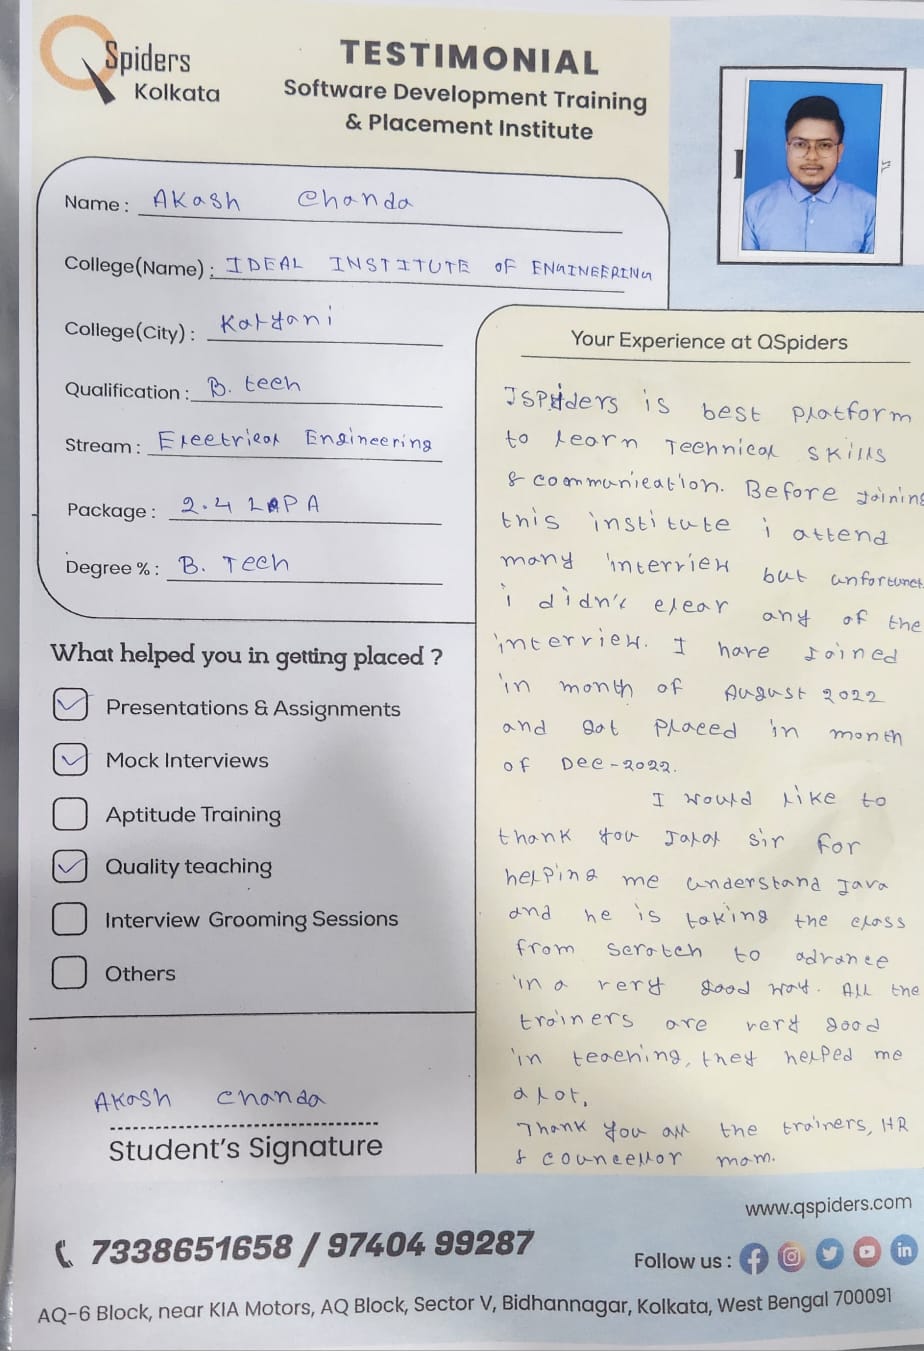 QSpiders
Kolkata
TESTIMONIAL
Software Development Training
& Placement Institute
Name : AKash Chanda
College(Name) : IDEAL INSTITUTE OF ENGINEERING
College(City) : Kalyani
Qualification : B. tech
Stream : Electrical Engineering
Package : 2.4 LPA
Degree % : B. Tech
What helped you in getting placed ?
Presentations & Assignments
Mock Interviews
Aptitude Training
Quality teaching
Interview Grooming Sessions
Others
AKash Chanda
Student's Signature
Your Experience at QSpiders
JSPiders is best platform
to learn Technical skills
& communication. Before Joining
this institute i attend
many interview but unfortunet
i didn't clear any of the
interview. I have Joined
in month of August 2022
and got placed in month
of Dec-2022.
I would like to
thank you Jalal sir for
helping me understand Java
and he is taking the class
from scratch to advance
in a very good way. All the
trainers are very good
in teaching, they helped me
a lot.
Thank you all the trainers, HR
& councellor mam.
www.qspiders.com
7338651658 / 97404 99287
Follow us :
AQ-6 Block, near KIA Motors, AQ Block, Sector V, Bidhannagar, Kolkata, West Bengal 700091